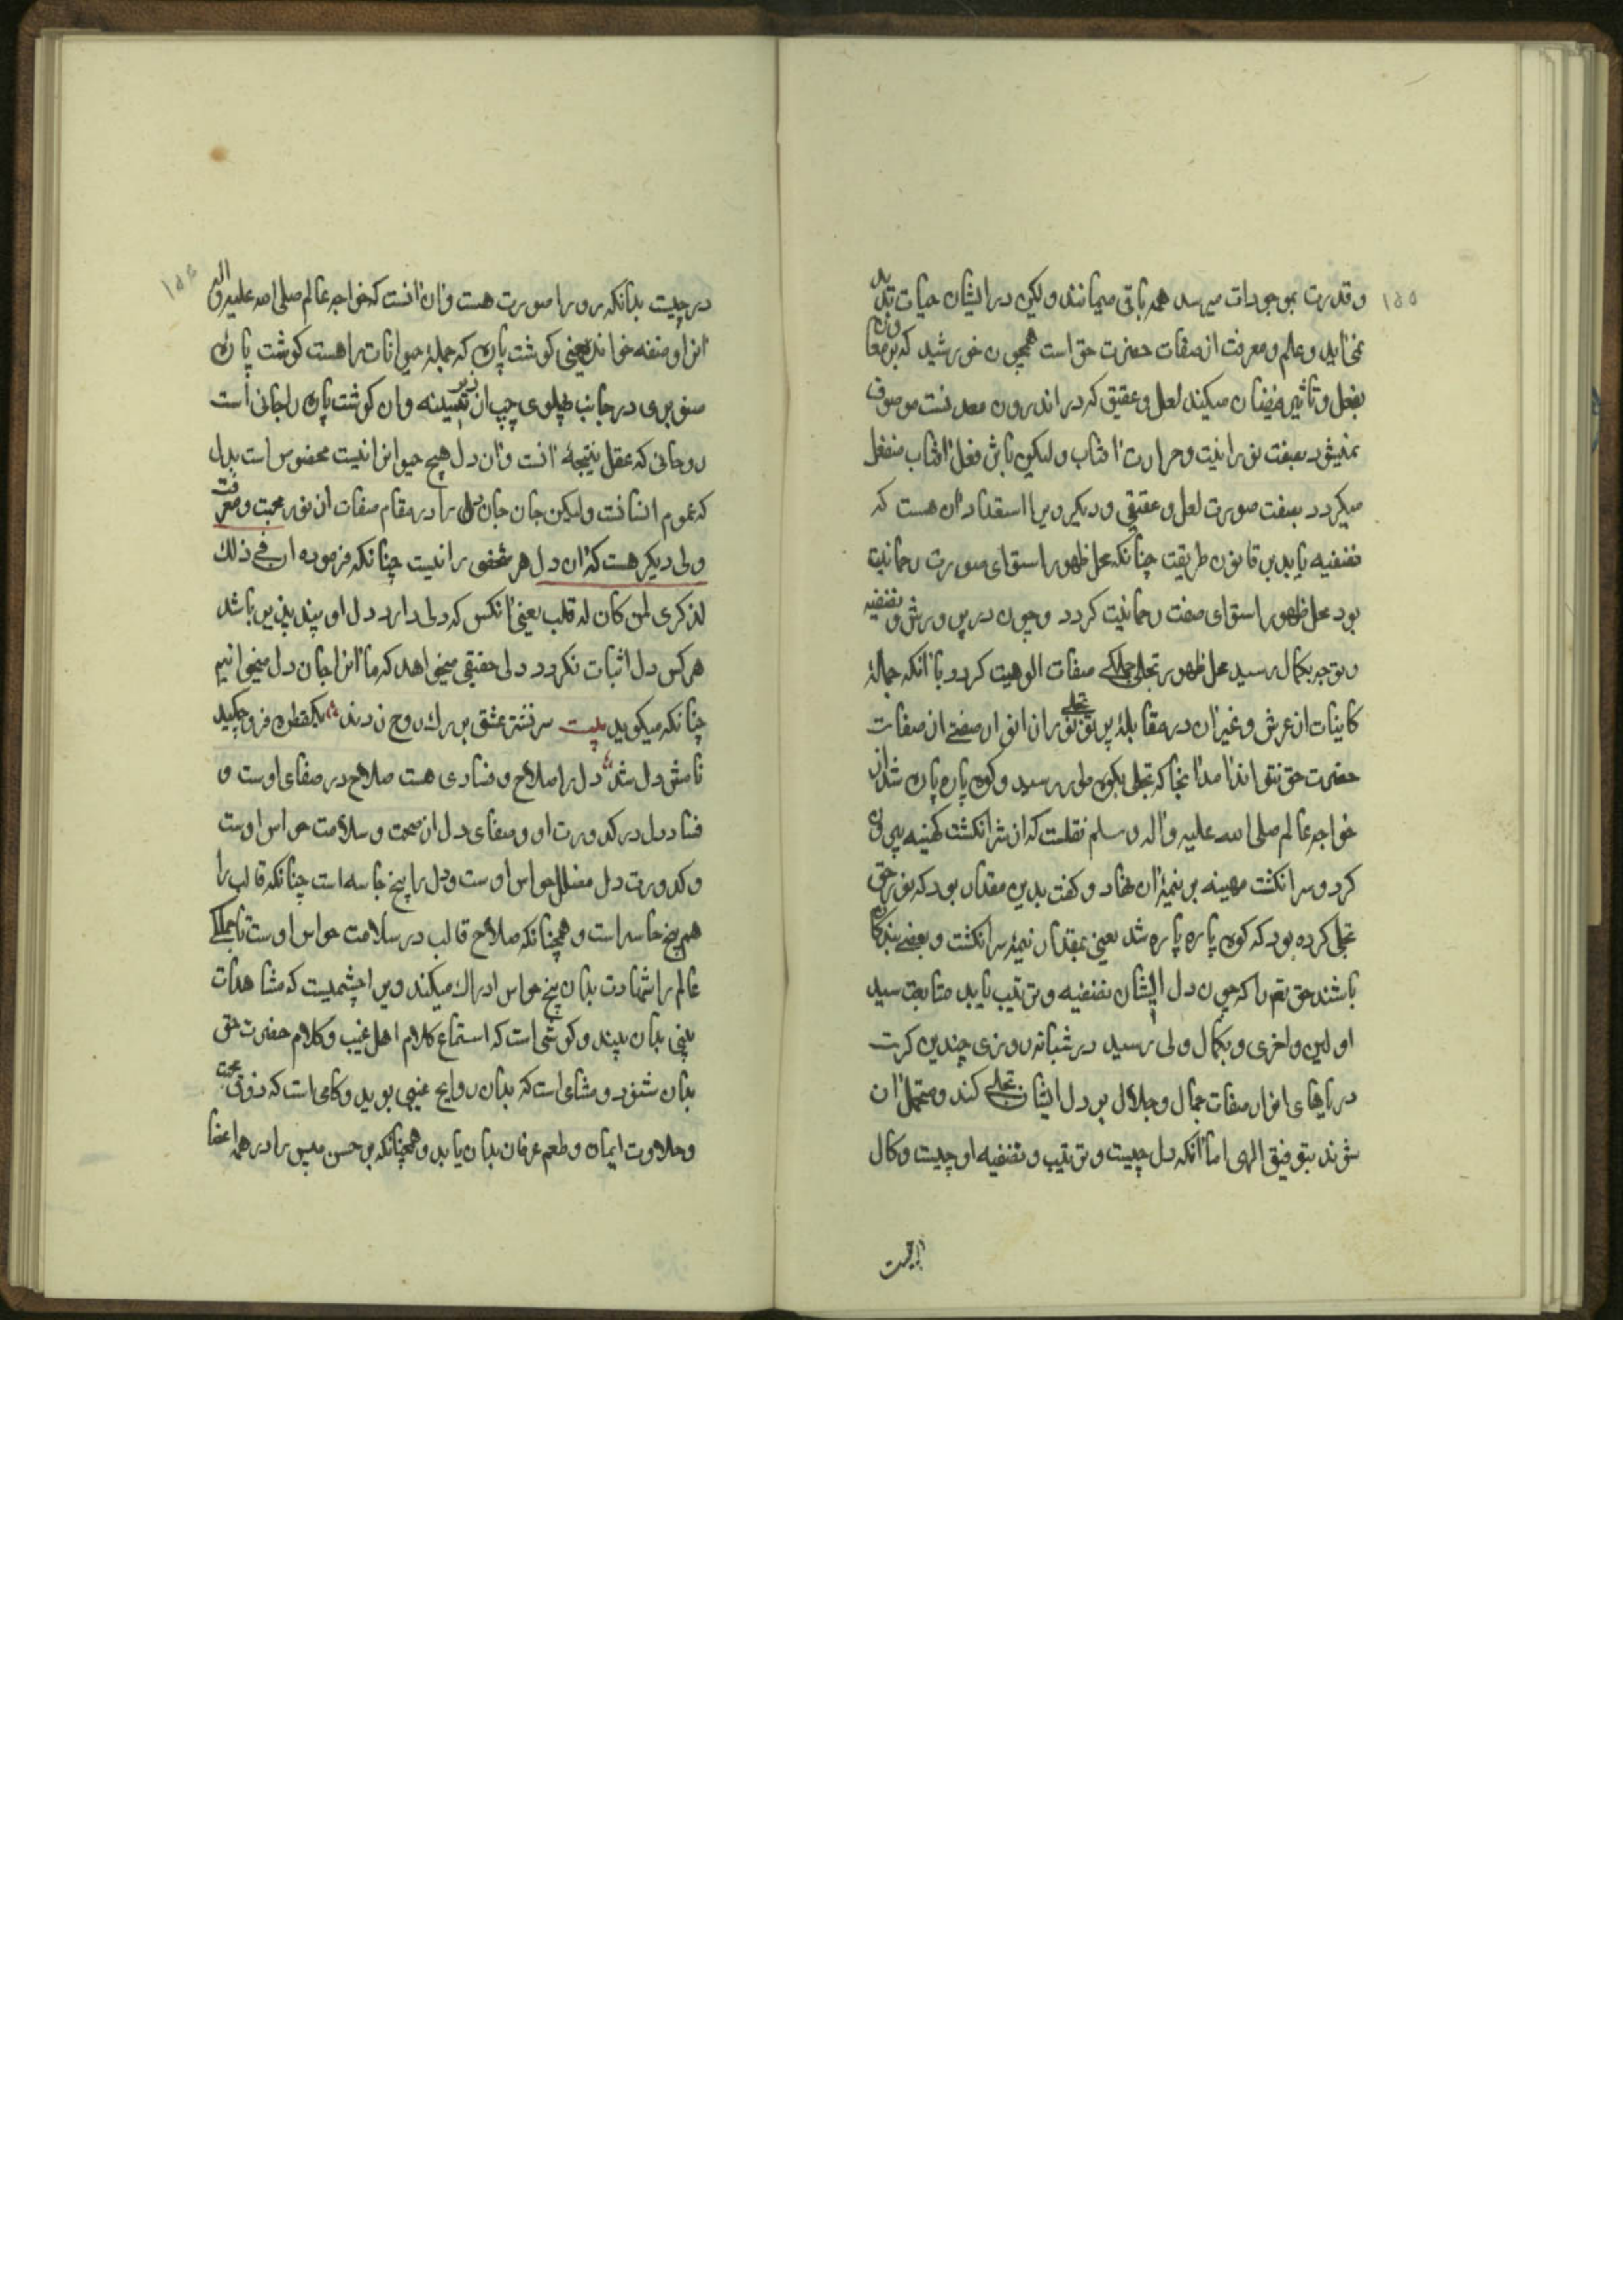 ۱۵۵
و قدرت بموجودات میرسد همه باقی میمانند ولیکن در ایشان حیات پدید
نمی‌اید و علم و معرفت از صفات حضرت حق است همچون خورشید که بر معادن
بفعل و تاثیر فیضان میکند لعل و عقیق که در اندرون معدنست موصوف
نمیشود بصفت نورانیت و حرارت آفتاب ولیکن باثر فعل آفتاب منفعل
میکردد بصفت صورت لعل و عقیقی و دیکر ویرا استعداد آن هست که
تصفیه یابد بر قانون طریقت چنانکه محل ظهور استوای صورت رحمانیت
بود محل ظهور استوای صفت رحمانیت کردد و چون در پرورش و تصفیه
و توجه بکمال رسید محل ظهور تجلی جملکی صفات الوهیت کردد با آنکه جملهٔ
کاینات از عرش و غیر آن در مقابلهٔ پرتو تجلی نور از انوار صفتی از صفات
حضرت حق نتواند آمد آنجا که تجلی بکوه طور رسید و کوه پاره پاره شد از
خواجه عالم صلی الله علیه و اله و سلم نقلست که از سر انکشت کهینه بیرون
کرد و سر انکشت مهینه بر نیمهٔ آن نهاد و کفت بدین مقدار بود که نور حق
تجلی کرده بود که کوه پاره پاره شد یعنی بمقدار نیمهٔ سر انکشت و بعضی بندکان
باشند حق تعم را که چون دل ایشان تصفیه و تربیت یابد متابعت سید
اولین و اخری و بکمال ولی رسید در شبانه روزی چندین کرت
دریاهای انوار صفات جمال و جلال بر دل ایشان تجلی کند و متحمل آن
شوند بتوفیق الهی اما آنکه دل چیست و تربیت و تصفیه او چیست و کمال
۱۵۶
در چیست بدانکه ویرا صورت هست و آن آنست که خواجه عالم صلی الله علیه و اله
آنرا مضغه خواند یعنی کوشت پاره که جملهٔ حیوانات را هست کوشت پاره
صنوبری در جانب پهلوی چپ از زیر سینه و آن کوشت پاره را جانی است
روحانی که عقل نتیجهٔ آنست و آن دل هیچ حیوانرا نیست مخصوص است بدل
که عموم انسانست ولیکن جان جان دل را در مقام صفات از نور محبت و معرفت
ولی دیکر هست که آن دل هر شخصی را نیست چنانکه فرموده ان فی ذلك
لذکری لمن کان له قلب یعنی آنکس که دلی دارد دل او پند پذیر باشد
هر کس دل اثبات نکردد دلی حقیقی میخواهد که ما آنرا جان دل میخوانیم
چنانکه میکوید بیت سر نشتر عشق بر رك روح زدند یکقطره فرو چکید
نامش دل شد دل را صلاح و فسادی هست صلاح در صفای اوست و
فساد دل در کدورت او و صفای دل از صحت و سلامت حواس اوست
و کدورت دل مضلل حواس اوست و دل را پنج حاسه است چنانکه قالب را
هم پنج حاسه است و همچنانکه صلاح قالب در سلامت حواس اوست تا جملکی
عالم را شهادت بدان پنج حواس ادراك میکند ویرا چشمیست که مشاهدات
بدان بیند و کوشی است که استماع کلام اهل غیب و کلام حضرت حق
بدان شنود و مشامی است که بدان روایح غیبی بوید و کامی است که ذوق محبت
و حلاوت ایمان و طعم عرفان بدان یابد و همچنانکه بر حسن را در همه اعضا